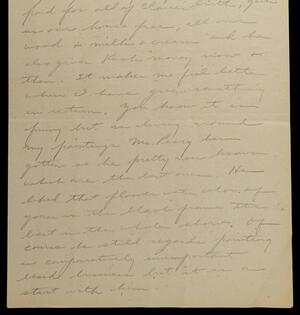 paid for all of Claire's birth, gives
us our house free, all our
wood & milk & cream & he
also gives Keshi money now &
then. It makes me feel better
when I have given something
in return. You know it is
funny but in living around
my paintings Mr. Perry has
gotten so he pretty near knows
which are the best ones. He
liked that flower wat. color, of
yours in the black frame the
best in the whole show. Of
course he still regards painting
as comparatively unimportant
beside business but it is a
start with him.